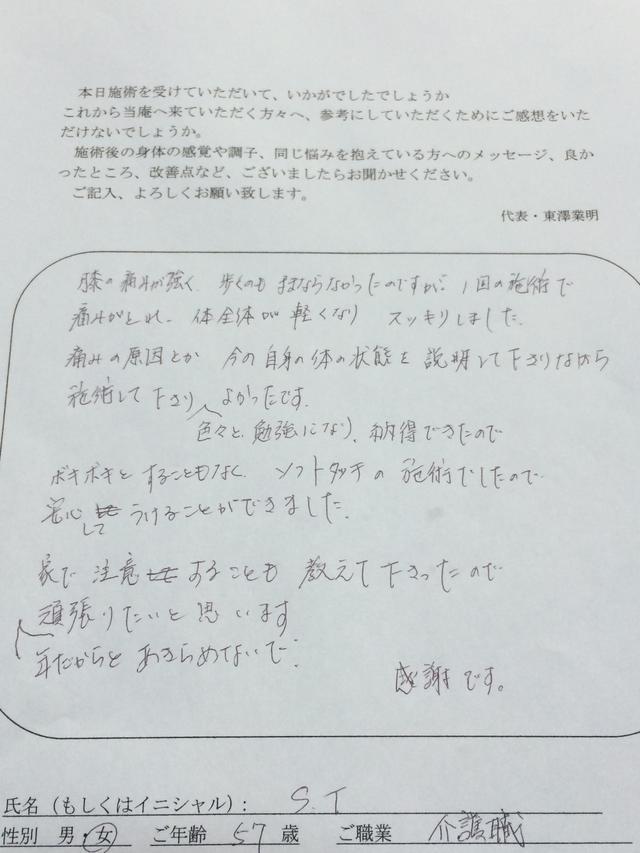 本日施術を受けていただいて、いかがでしたでしょうか
これから当庵へ来ていただく方々へ、参考にしていただくためにご感想をいた
だけないでしょうか。
施術後の身体の感覚や調子、同じ悩みを抱えている方へのメッセージ、良かっ
たところ、改善点など、ございましたらお聞かせください。
ご記入、よろしくお願い致します。
代表・東澤業明
膝の痛みが強く、歩くのもままならなかったのですが、1回の施術で
痛みがとれ、体全体が軽くなり スッキリしました。
痛みの原因とか 今の自身の体の状態を 説明して下さりながら
施術して下さり よかったです。
色々と勉強になり、納得できたので
ボキボキとすることもなく、ソフトタッチの施術でしたので
安心して うけることができました。
家で 注意することも 教えて下さったので
頑張りたいと思います
年だからと あきらめないで
感謝です。
氏名（もしくはイニシャル）： S.T
性別 男・女 ご年齢 57 歳 ご職業 介護職